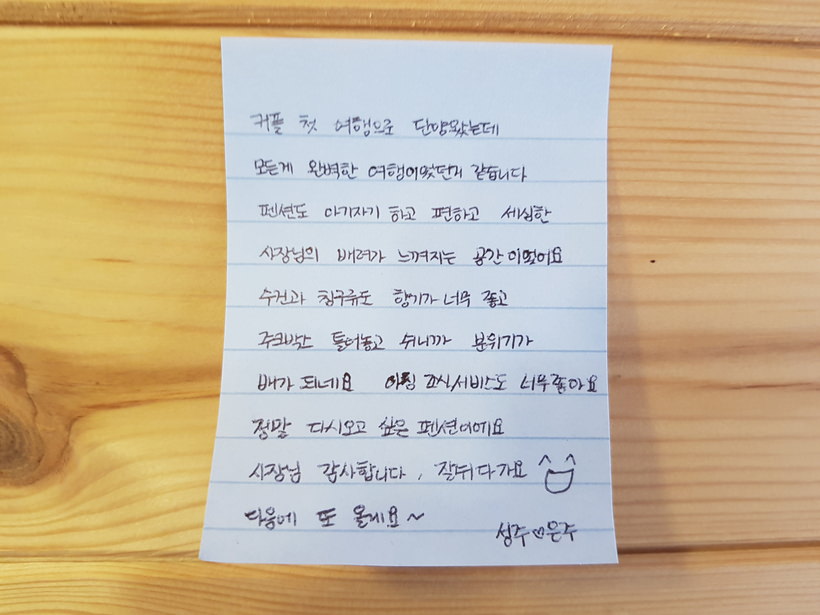 커플 첫 여행으로 단양왔는데
모든게 완벽한 여행이었던거 같습니다
펜션도 아기자기 하고 편하고 세심한
사장님의 배려가 느껴지는 공간이었어요
수건과 침구류도 향기가 너무 좋고
쥬크박스 틀어놓고 쉬니까 분위기가
배가 되네요 아침 조식서비스도 너무좋아요
정말 다시오고 싶은 펜션이에요
사장님 감사합니다, 잘쉬다가요
다음에 또 올게요~
성주♡은주